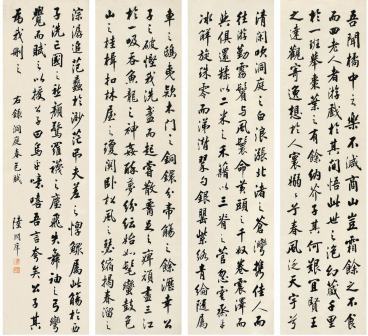 吾聞橘中之樂不減商山豈霜餘之不食
而四老人者游戲於其間悟此世之泡幻藏千里
於一班舉棗葉之有餘納芥子其何艱宜賢王
之達觀寄逸想於人寰嫋嫋兮春風泛天宇兮
清閑吹洞庭之白浪漲北渚之蒼灣攜佳人而
往游勒霧鬢與風鬟命黃頭之千奴卷震澤而
與俱還糅以二米之禾藉以三脊之菅忽雲蒸而
冰解旋珠零而涕潸翠勺銀罌紫絡青綸隨屬
車之鴟夷款木門之銅鐶分帝觴之餘瀝幸公
子之破慳我洗盞而起嘗散腰足之痺頑盡三江
於一吸吞魚龍之神姦醉夢紛紜始如髦蠻鼓包
山之桂楫扣林屋之瓊關臥松風之瑟縮揭春溜之
淙潺追范蠡於渺茫弔夫差之惸鰥屬此觴於西
子洗亡國之愁顏驚羅襪之塵飛失舞袖之弓彎
覺而賦之以授公子曰烏乎噫嘻吾言夸矣公子其
為我刪之
右錄洞庭春色賦
陸潤庠